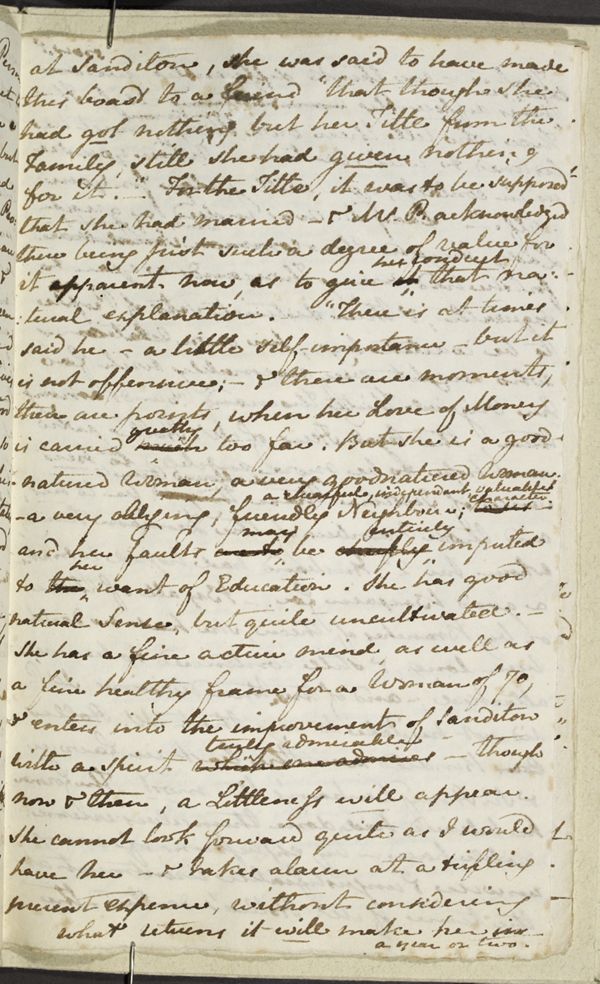 at Sanditon, she was said to have made
this boast to a friend "that though she
had got nothing but her Title from the
Family, still she had given nothing
for it." – For the Title, it was to be supposed
that she had married – & Mr. P. acknowledged
there being just such a degree of value for
her conduct
it apparent now, as to give it that na:
:tural explanation. "There is at times
said he – a little self-importance – but it
is not offensive; – & there are moments,
there are points, when her Love of Money
greatly
is carried much too far. But she is a good
natured Woman, a very goodnatured Woman.
a chearful, independant, valuable
character
– a very obliging, friendly Neighbour;
may entirely
and her faults be chiefly imputed
her
to the want of Education. She has good
natural Sense, but quite uncultivated. –
She has a fine active mind, as well as
a fine healthy frame for a Woman of 70,
& enters into the improvement of Sanditon
truly admirable
with a spirit which one admires – though
now & then, a Littleness will appear.
She cannot look forward quite as I would
have her – & takes alarm at a trifling
present expence, without considering
what returns it will make her in
a year or two.